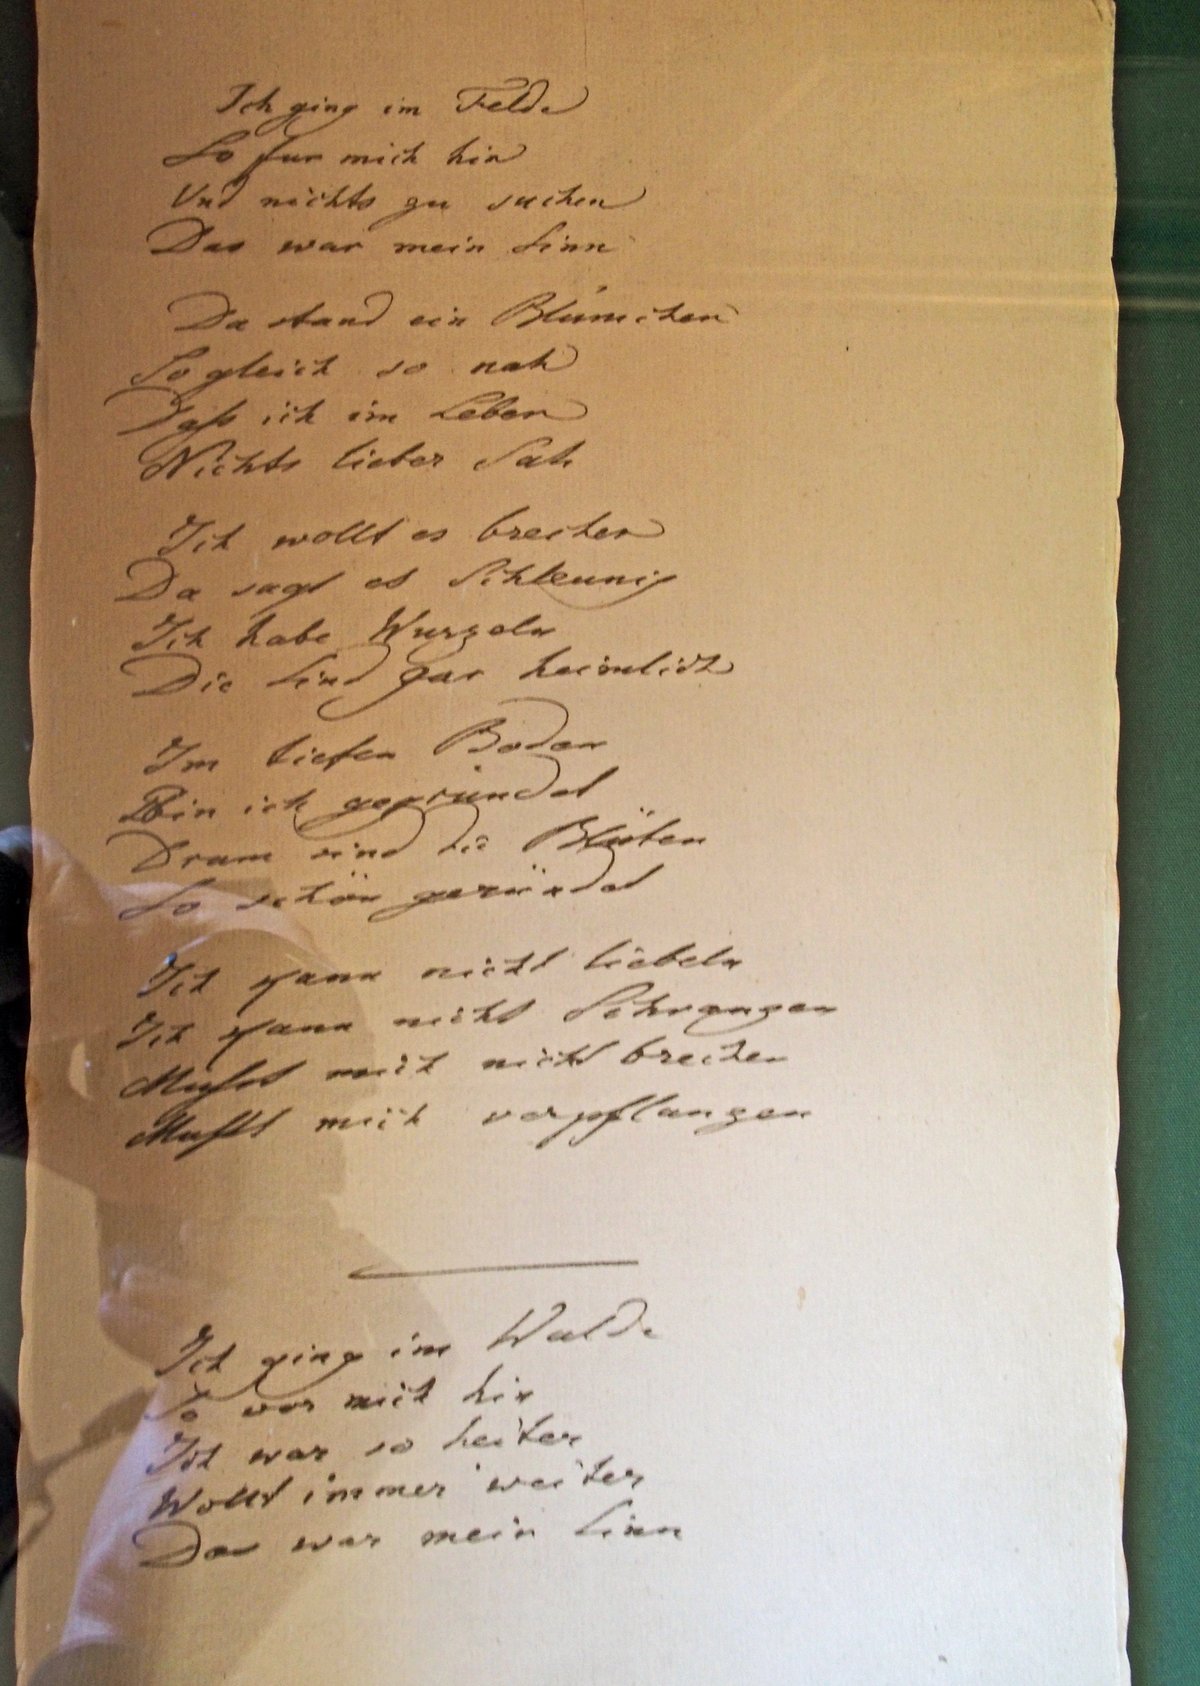 Ich ging im Felde
So fur mich hin
Und nichts zu suchen
Das war mein Sinn
Da stand ein Blümchen
Sogleich so nah
Daß ich im Leben
Nichts lieber Sah
Ich wollt es brechen
Da sagt es Schleunig
Ich habe Wurzeln
Die Sind gar heimlich
Im tiefen Boden
Bin ich gegründet
Drum sind die Blüten
So schön geründet
Ich kann nicht liebeln
Ich kann nicht Schranzen
Mußt mich nicht brechen
Mußt mich verpflanzen
Ich ging im Walde
So vor mich hin
Ich war so heiter
Wollt immer weiter
Das war mein Sinn